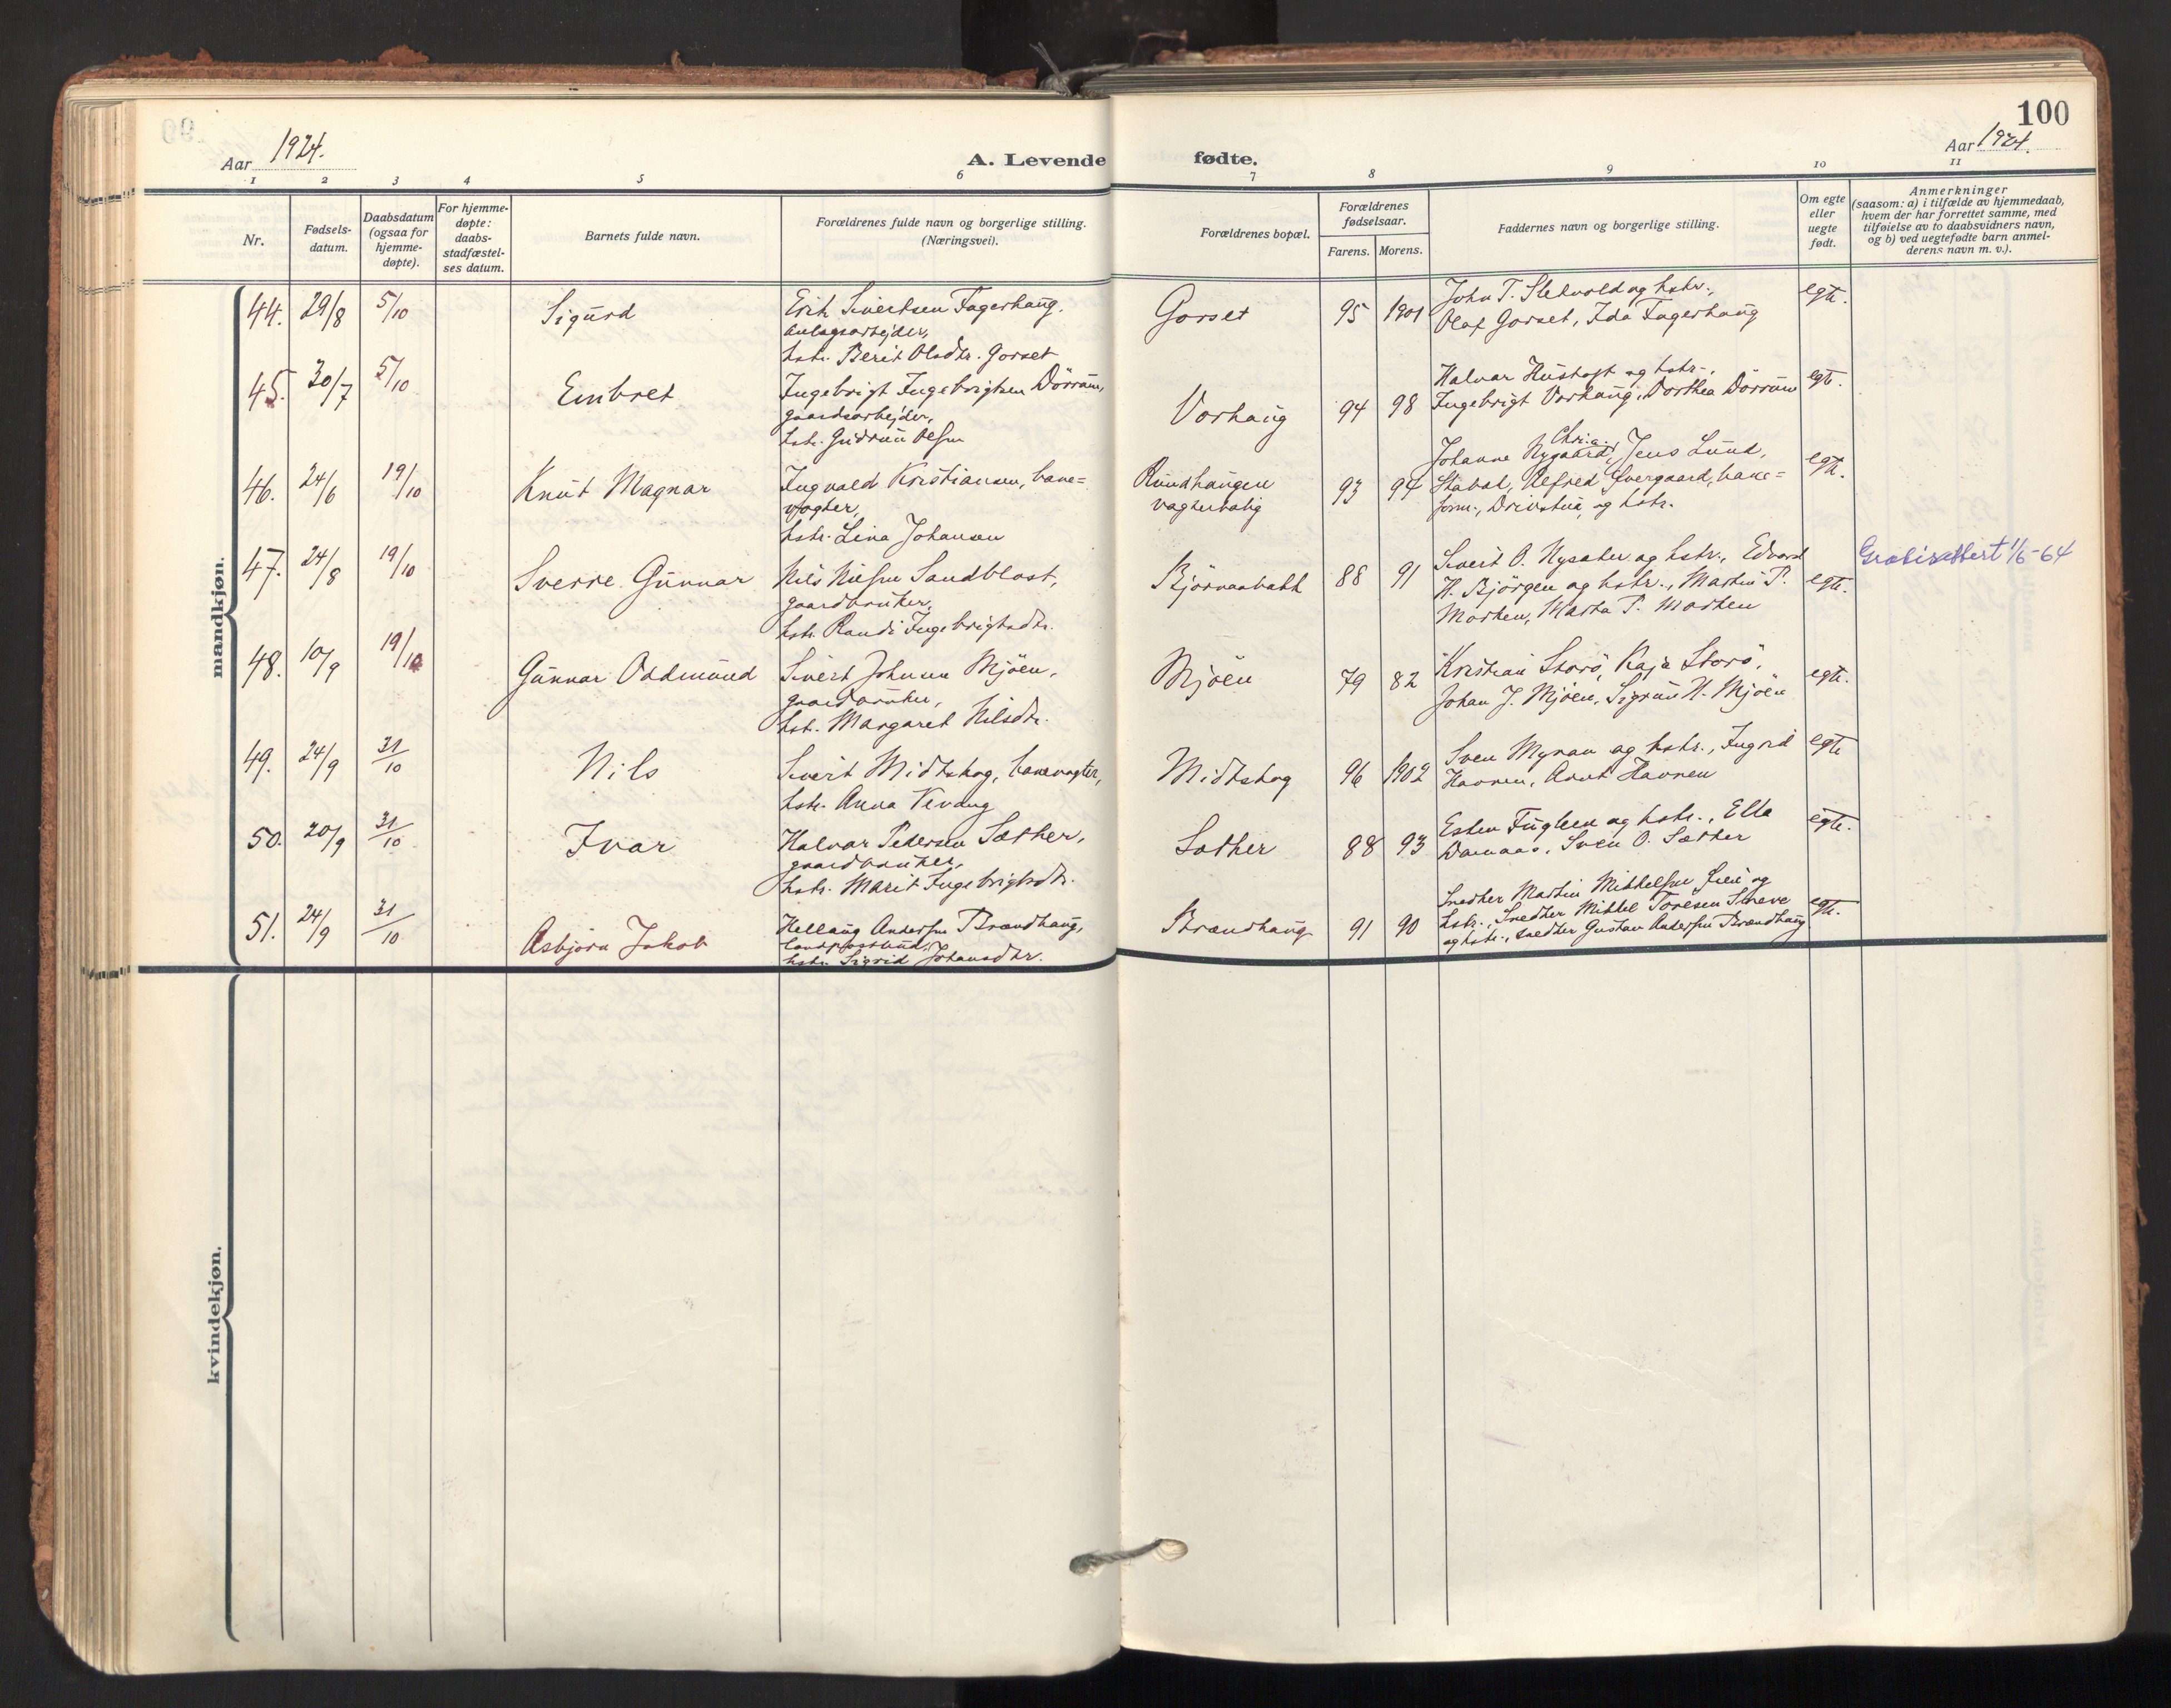 100
Aar 1924.
Aar 1924.
A. Levende fødte.
1 2 3 4 5 6 7 8 9 10 11
Nr.
Fødsels-
datum.
Daabsdatum
(ogsaa for
hjemme-
døpte).
For hjemme-
døpte:
daabs-
stadfæstel-
ses datum.
Barnets fulde navn.
Forældrenes fulde navn og borgerlige stilling.
(Næringsvei).
Forældrenes bopæl.
Forældrenes
fødselsaar.
Farens. Morens.
Faddernes navn og borgerlige stilling.
Om egte
eller
uegte
født.
Anmerkninger
(saasom: a) i tilfælde av hjemmedaab,
hvem der har forrettet samme, med
tilføielse av to daabsvidners navn,
og b) ved uegtefødte barn anmel-
derens navn m. v.).
mandkjøn.
44. 29/8 5/10 Sigurd
Erik Sivertsen Fagerhaug,
anlagsarbejder,
hstr. Berit Olsdtr. Gorset
Gorset 95 1901
John T. Sletvold og hstr.,
Olaf Gorset, Ida Fagerhaug
egte.
45. 30/7 5/10 Embret
Ingebrigt Ingebrigtsen Dörrum,
gaardsarbejder,
hstr. Gudrun Olsen
Vorhaug 94 98
Halvar Hustoft og hstr.,
Ingebrigt Vorhaug, Dorthea Dörrum
egte.
46. 24/6 19/10 Knut Magnar
Ingvald Kristiansen, bane=
vogter,
hstr. Lina Johansen
Rundhaugen
vagterbolig
93 94
Johanne Nygaard, Chr.a., Jens Lund,
Alfred bane=
form., Drivstua, og hstr.
egte.
47. 24/8 19/10 Sverre Gunnar
Nils Nilsen Sandblost,
gaardbruker,
hstr. Randi Ingebrigtsdtr.
88 91
Sivert O. Nysæter og hstr., Edvard
H. Bjørgen og hstr., Martin P.
Morken, Marta P. Morken
egte.
1/6-64
48. 10/9 19/10 Gunnar Oddmund
Sivert Johnsen Mjöen,
gaardbruker,
hstr. Margaret Nilsdtr.
Mjöen 79 82
Kristian Storö, Kaja Storö,
Johan J. Mjöen, Sigrun H. Mjöen
egte.
49. 24/9 31/10 Nils
Sivert Midtskog, banevogter,
hstr. Anna Vevang
Midtskog 96 1902
Sven Myran og hstr., Ingrid
Havnen, Arnt Havnen
egte
50. 20/9 31/10 Ivar
Halvar Pedersen Sæther,
gaardbruker,
hstr. Marit Ingebrigtsdtr.
Sæther 88 93
Esten Fugleen og hstr., Ella
Sven O. Sæther
egte.
51. 24/9 31/10 Asbjörn Jakob
Hellaug Andersen Brændhaug,
landpostbud,
hstr. Sigrid Johansdtr.
Brændhaug 91 90
Snedker Martin Mikkelsen og
hstr., Snedker Mikkel Toresen
og hstr., snedker Gustav Andersen Brændhaug
egte.
kvindekjøn.